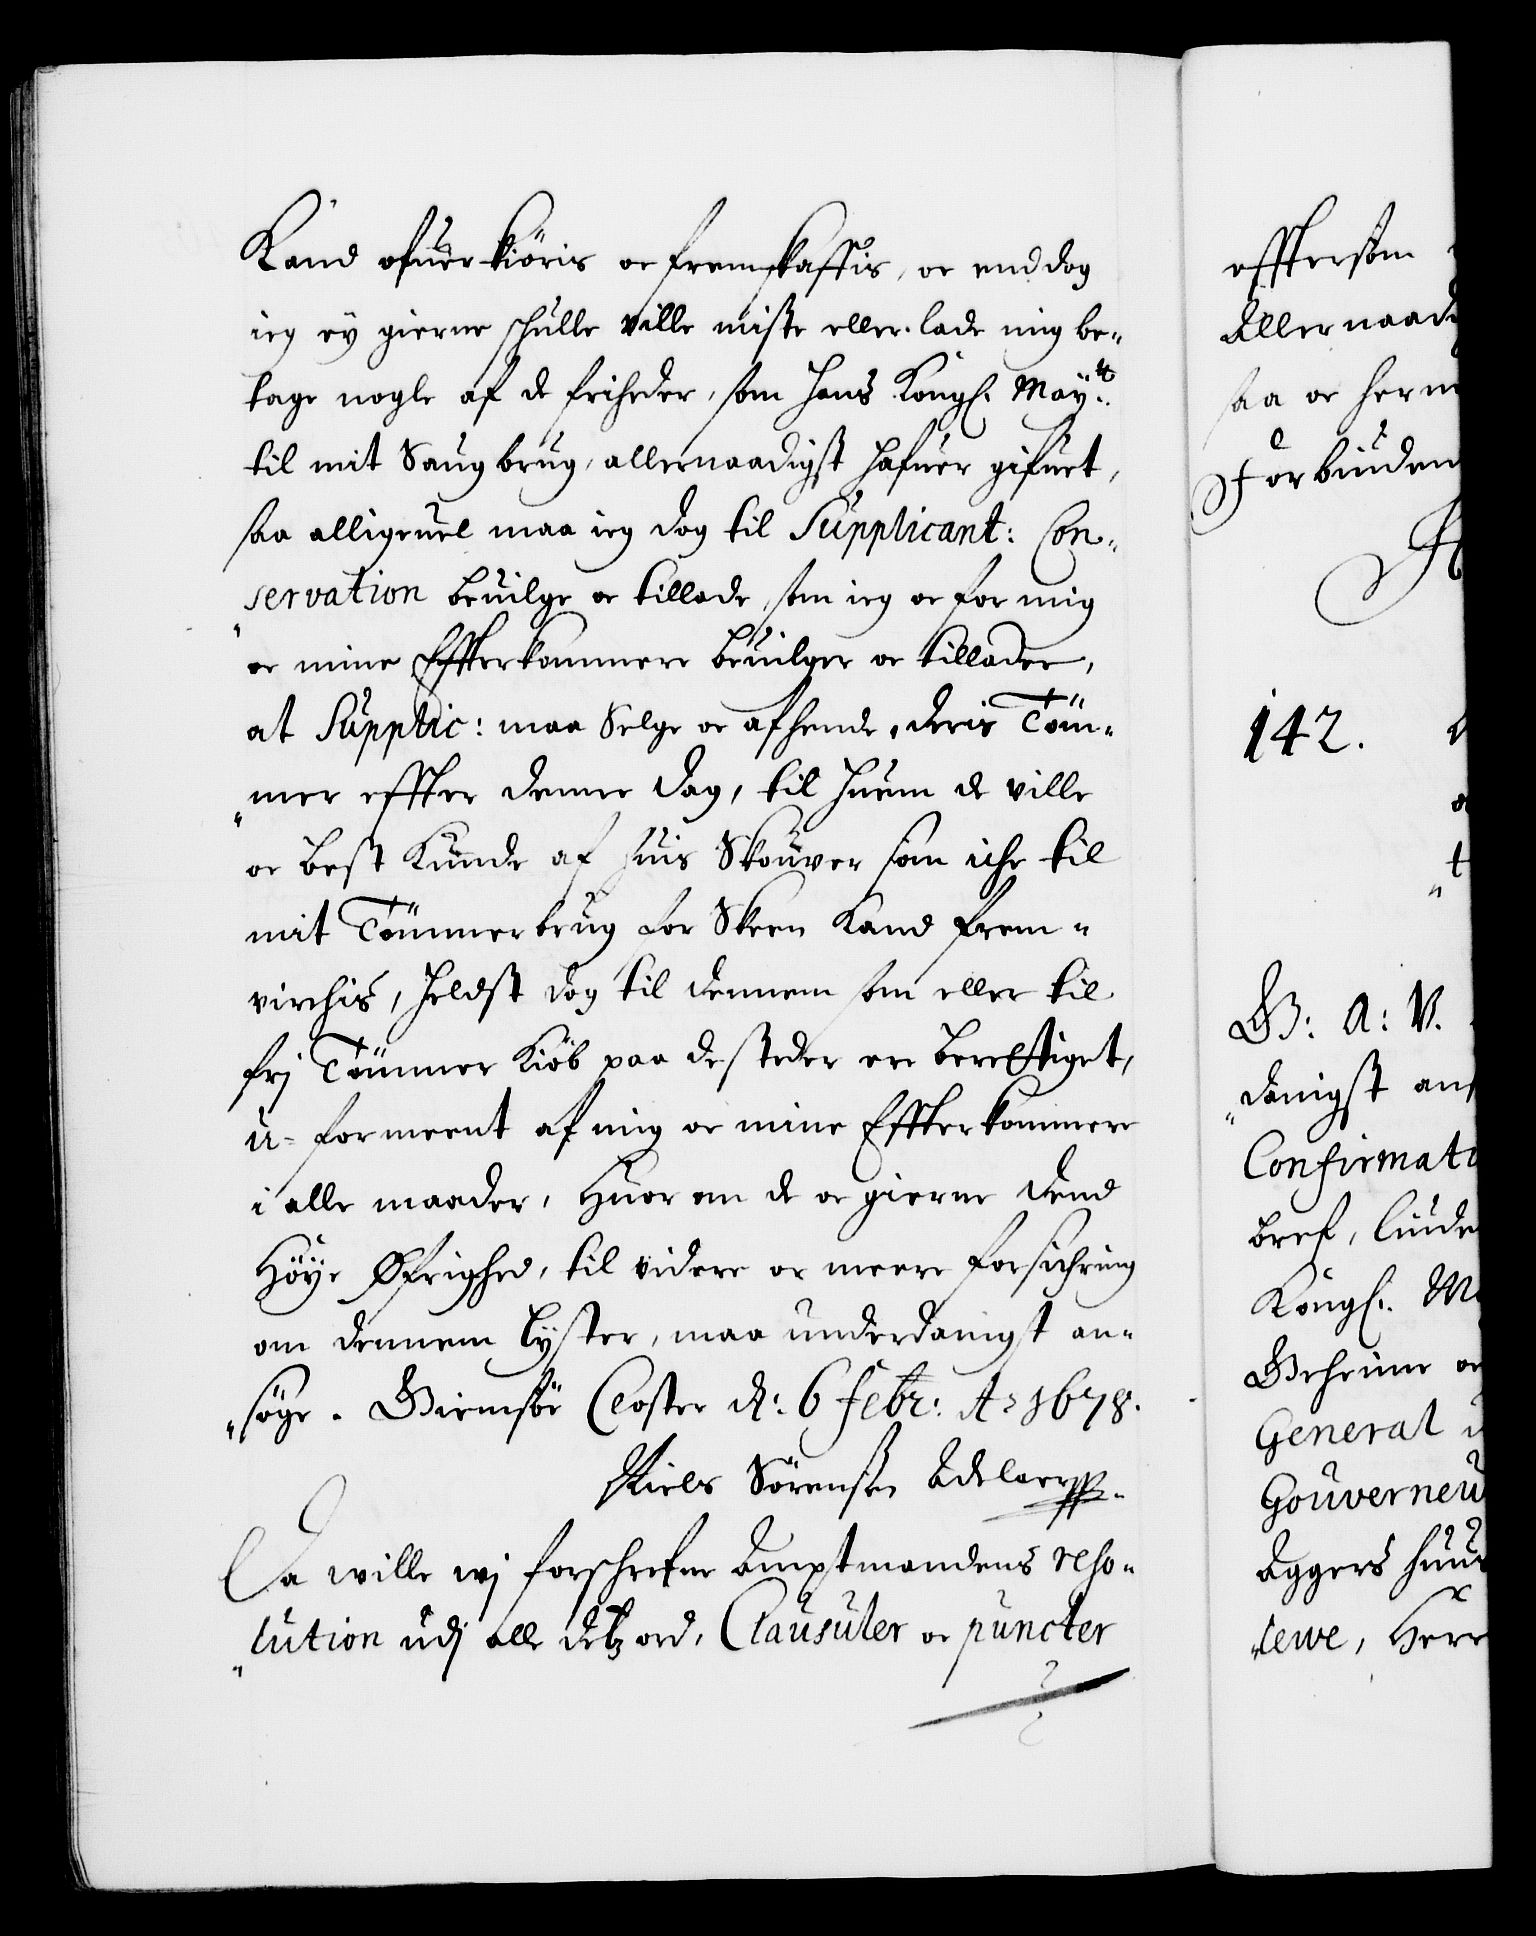 Kand ofuerkiöris oc fremskaffis, oc end dog
ieg ey gierne schulle ville miste eller lade mig be-
tage nogle af de friheder, som Hans Kongl. Mayt:
til mit Saugbrug, allernaadigst hafuer gifuet,
saa alligeuel maa ieg dog til Supplicant: Con-
servation beuilge oc tillade, som ieg oc for mig
oc mine Effterkommere beuilger oc tillader,
at Supplic: maa Selge oc afhende, deris Töm-
mer effter denne dag, til huem de ville
oc best Kunde af huis Skouver som iche til
mit Tömmerbrug for Skeen Kand frem-
virchis, heldst dog til dennem som eller til
frj Tömmer Kiöb paa de steder er berettiget,
u-formeent af mig oc mine Effterkommere
i alle maader, Huor om de oc gierne dend
Höye Øfrighed, til videre oc meere forsichring
om dennem lyster, maa underdanigst an-
söge. Giemsöe Closter d: 6 Febr: Ao 1678.
Niels Sörensen Adelaer
Da wille wj forschrefne Amptmandens reso-
lution udj alle detz ord, Clausuler oc puncter
efftersom
Allernaadi
saa oc herm
Forbiuden
142.
G: A: V.
danigst an
Confirmati
bref, liude
Kongl. M
Geheime oc
General
Gouverneu
Aggers huus
lewe, Herr